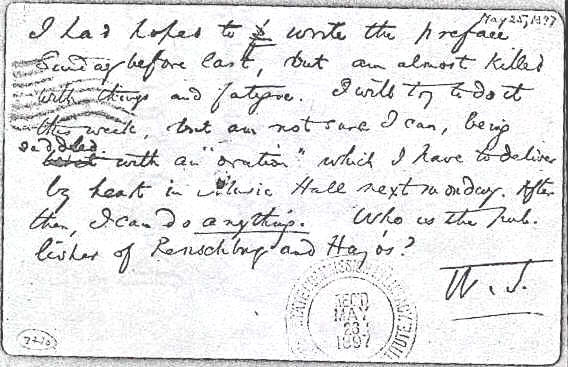 May 25, 1897
I had hopes to write the preface
Sunday before last, but am almost killed
with things and fatigue. I will try to do it
this week, but am not sure I can, being
saddled
with an "oration" which I have to deliver
by heart in Music Hall next monday. After
then, I can do anything. Who is the pub-
lisher of Renschburg and Hajós?
W. J.
REC'D
MAY
1897